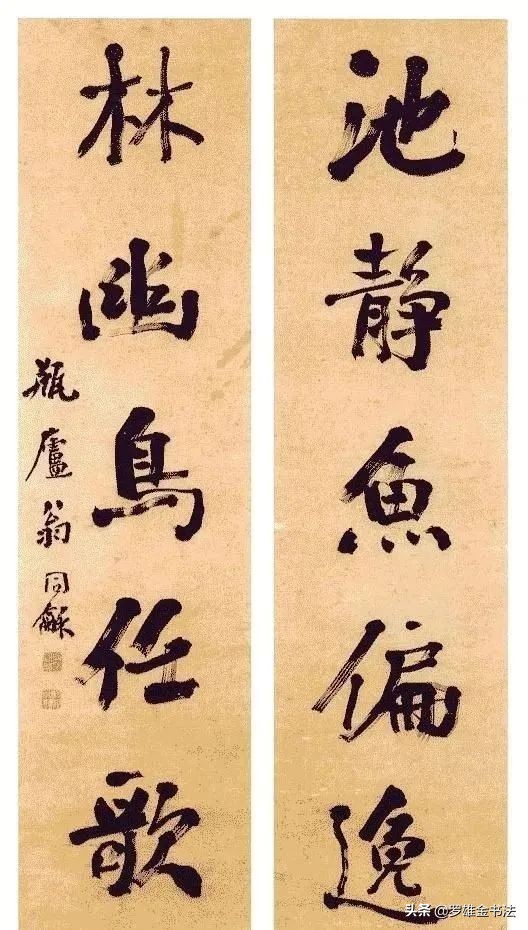 池靜魚偏逸
林幽鳥任歌
瓶廬翁同龢
头条@罗雄金书法